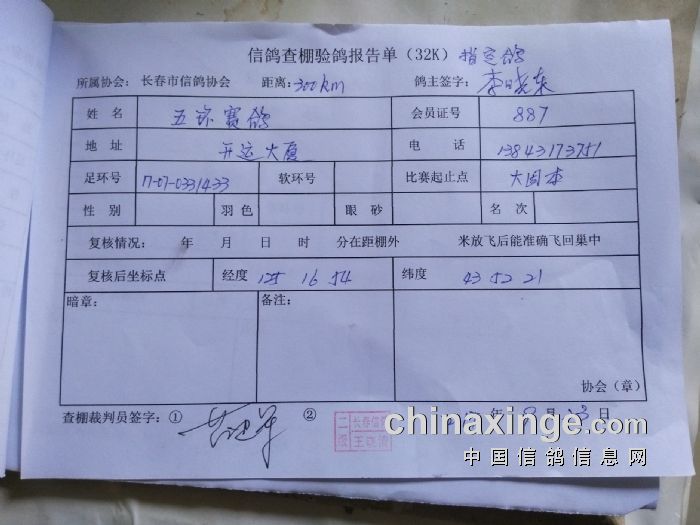 信鸽查棚验鸽报告单（32K）指定鸽
所属协会：长春市信鸽协会 距离：300km 鸽主签字：李晓东
姓 名 五环赛鸽 会员证号 887
地 址 开运大厦 电 话 13843173751
足环号 17-07-0331433 软环号 比赛起止点 大固本
性 别 羽 色 眼 砂 名 次
复核情况： 年 月 日 时 分在距棚外 米放飞后能准确飞回巢中
复核后坐标点 经度 125 16 54 纬度 43 52 21
暗章： 备注：
协会（章）
查棚裁判员签字：① ② 二级 长春信鸽 年 月 日
chinaxinge.com
中国信鸽信息网